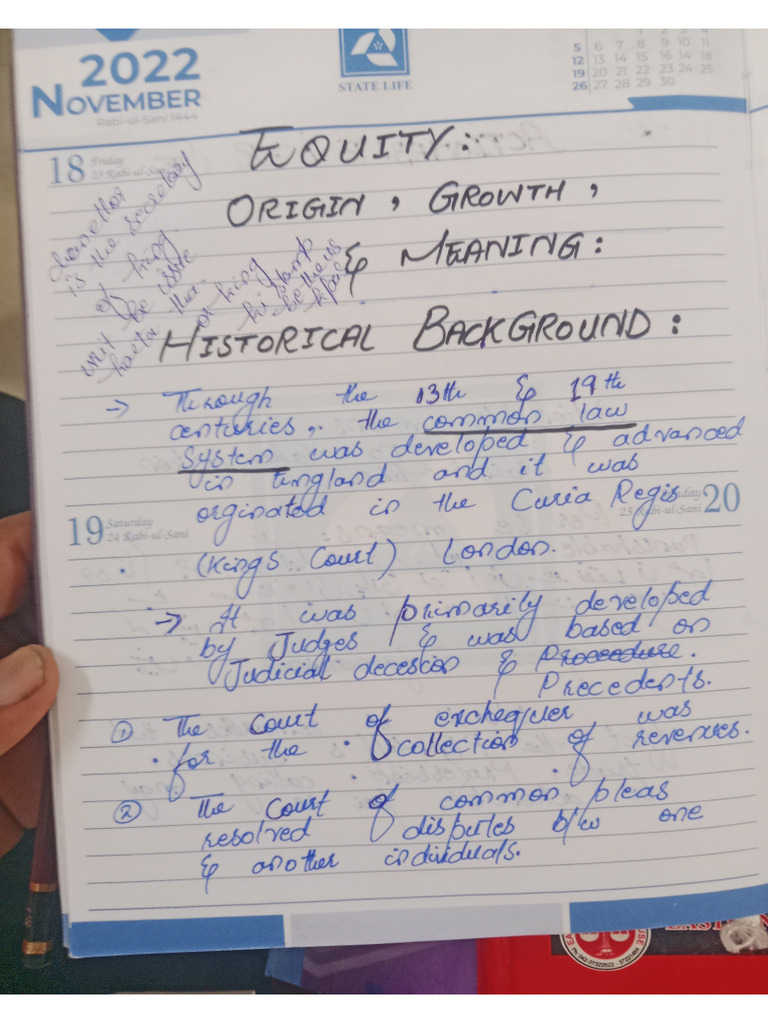 2022
NOVEMBER
Rabi-ul-Sani 1444
STATE LIFE
5 6 7 8 9 10 11
12 13 14 15 16 17 18
19 20 21 22 23 24 25
26 27 28 29 30
18 Friday
23 Rabi-ul-Sani
is the secretary
of king.
EQUITY:
ORIGIN, GROWTH,
& MEANING:
HISTORICAL BACKGROUND:
→ Through the 13th & 19th
centuries, the common law
system was developed & advanced
in England and it was
orginated in the Curia Regis
19 Saturday
24 Rabi-ul-Sani
20
25
(Kings Court) London.
→ It was primarily developed
by Judges & was based on
Judicial decescion & Procedure.
Precedents.
① The Court of exchequer was
for the collection of revenues.
② The Court of common pleas
resolved disputes b/w one
& another individuals.